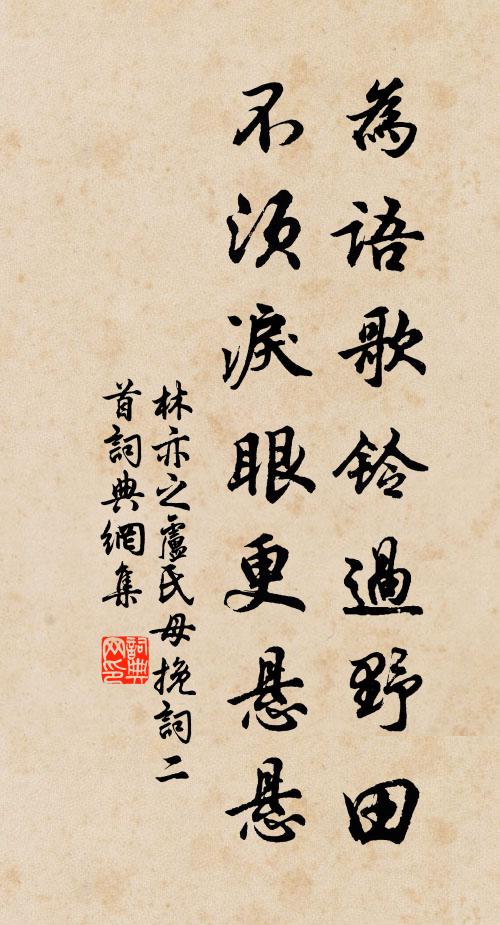 為語歌鈴過野田
不須淚眼更懸懸
林亦之盧氏母挽詞二
首詞典網集
詞典
网印